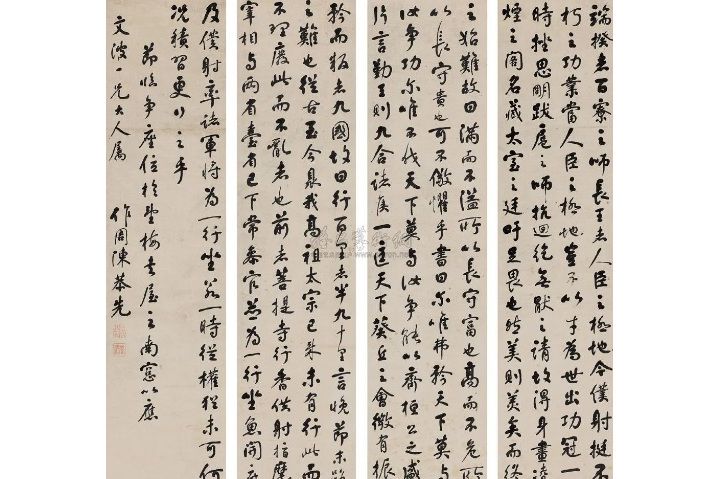 端揆者百寮之師長王者人臣之極地今僕射挺不
朽之功業當人臣之極地豈不以才為世出功冠一
時挫思明跋扈之師抗迴紇無厭之請故得身畫凌
煙之閣名藏太室之廷吁足畏也然美則美矣而終
之始難故曰滿而不溢所以長守富也高而不危所
以長守貴也可不儆懼乎書曰爾唯弗矜天下莫與
汝爭功爾唯不伐天下莫與汝爭能以齊桓公之盛
片言勤王則九合諸侯一匡天下葵丘之會微有振
矜而叛者九國故曰行百里者半九十里言晚節末路
之難也從古至今暨我高祖太宗已來未有行此而
不理廢此而不亂者也前者菩提寺行香僕射指麾
宰相與兩省臺省已下常參官並為一行坐魚開府
及僕射率諸軍將為一行坐若一時從權猶未可何
況積習更行之乎
節臨爭座位於梅屋之南窗以應
文波一兄大人屬 作周陳恭先